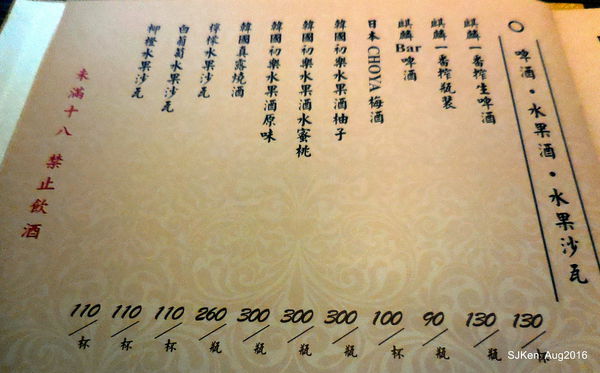 啤酒・水果酒・水果沙瓦
麒麟一番榨生啤酒 130/杯
麒麟一番榨瓶裝 130/瓶
麒麟 Bar 啤酒 90/瓶
日本 CHOYA 梅酒 100/杯
韓國初樂水果酒柚子 300/瓶
韓國初樂水果酒水蜜桃 300/瓶
韓國初樂水果酒原味 300/瓶
韓國真露燒酒 260/瓶
檸檬水果沙瓦 110/杯
白葡萄水果沙瓦 110/杯
柳橙水果沙瓦 110/杯
未滿十八 禁止飲酒
SJKen Aug2016